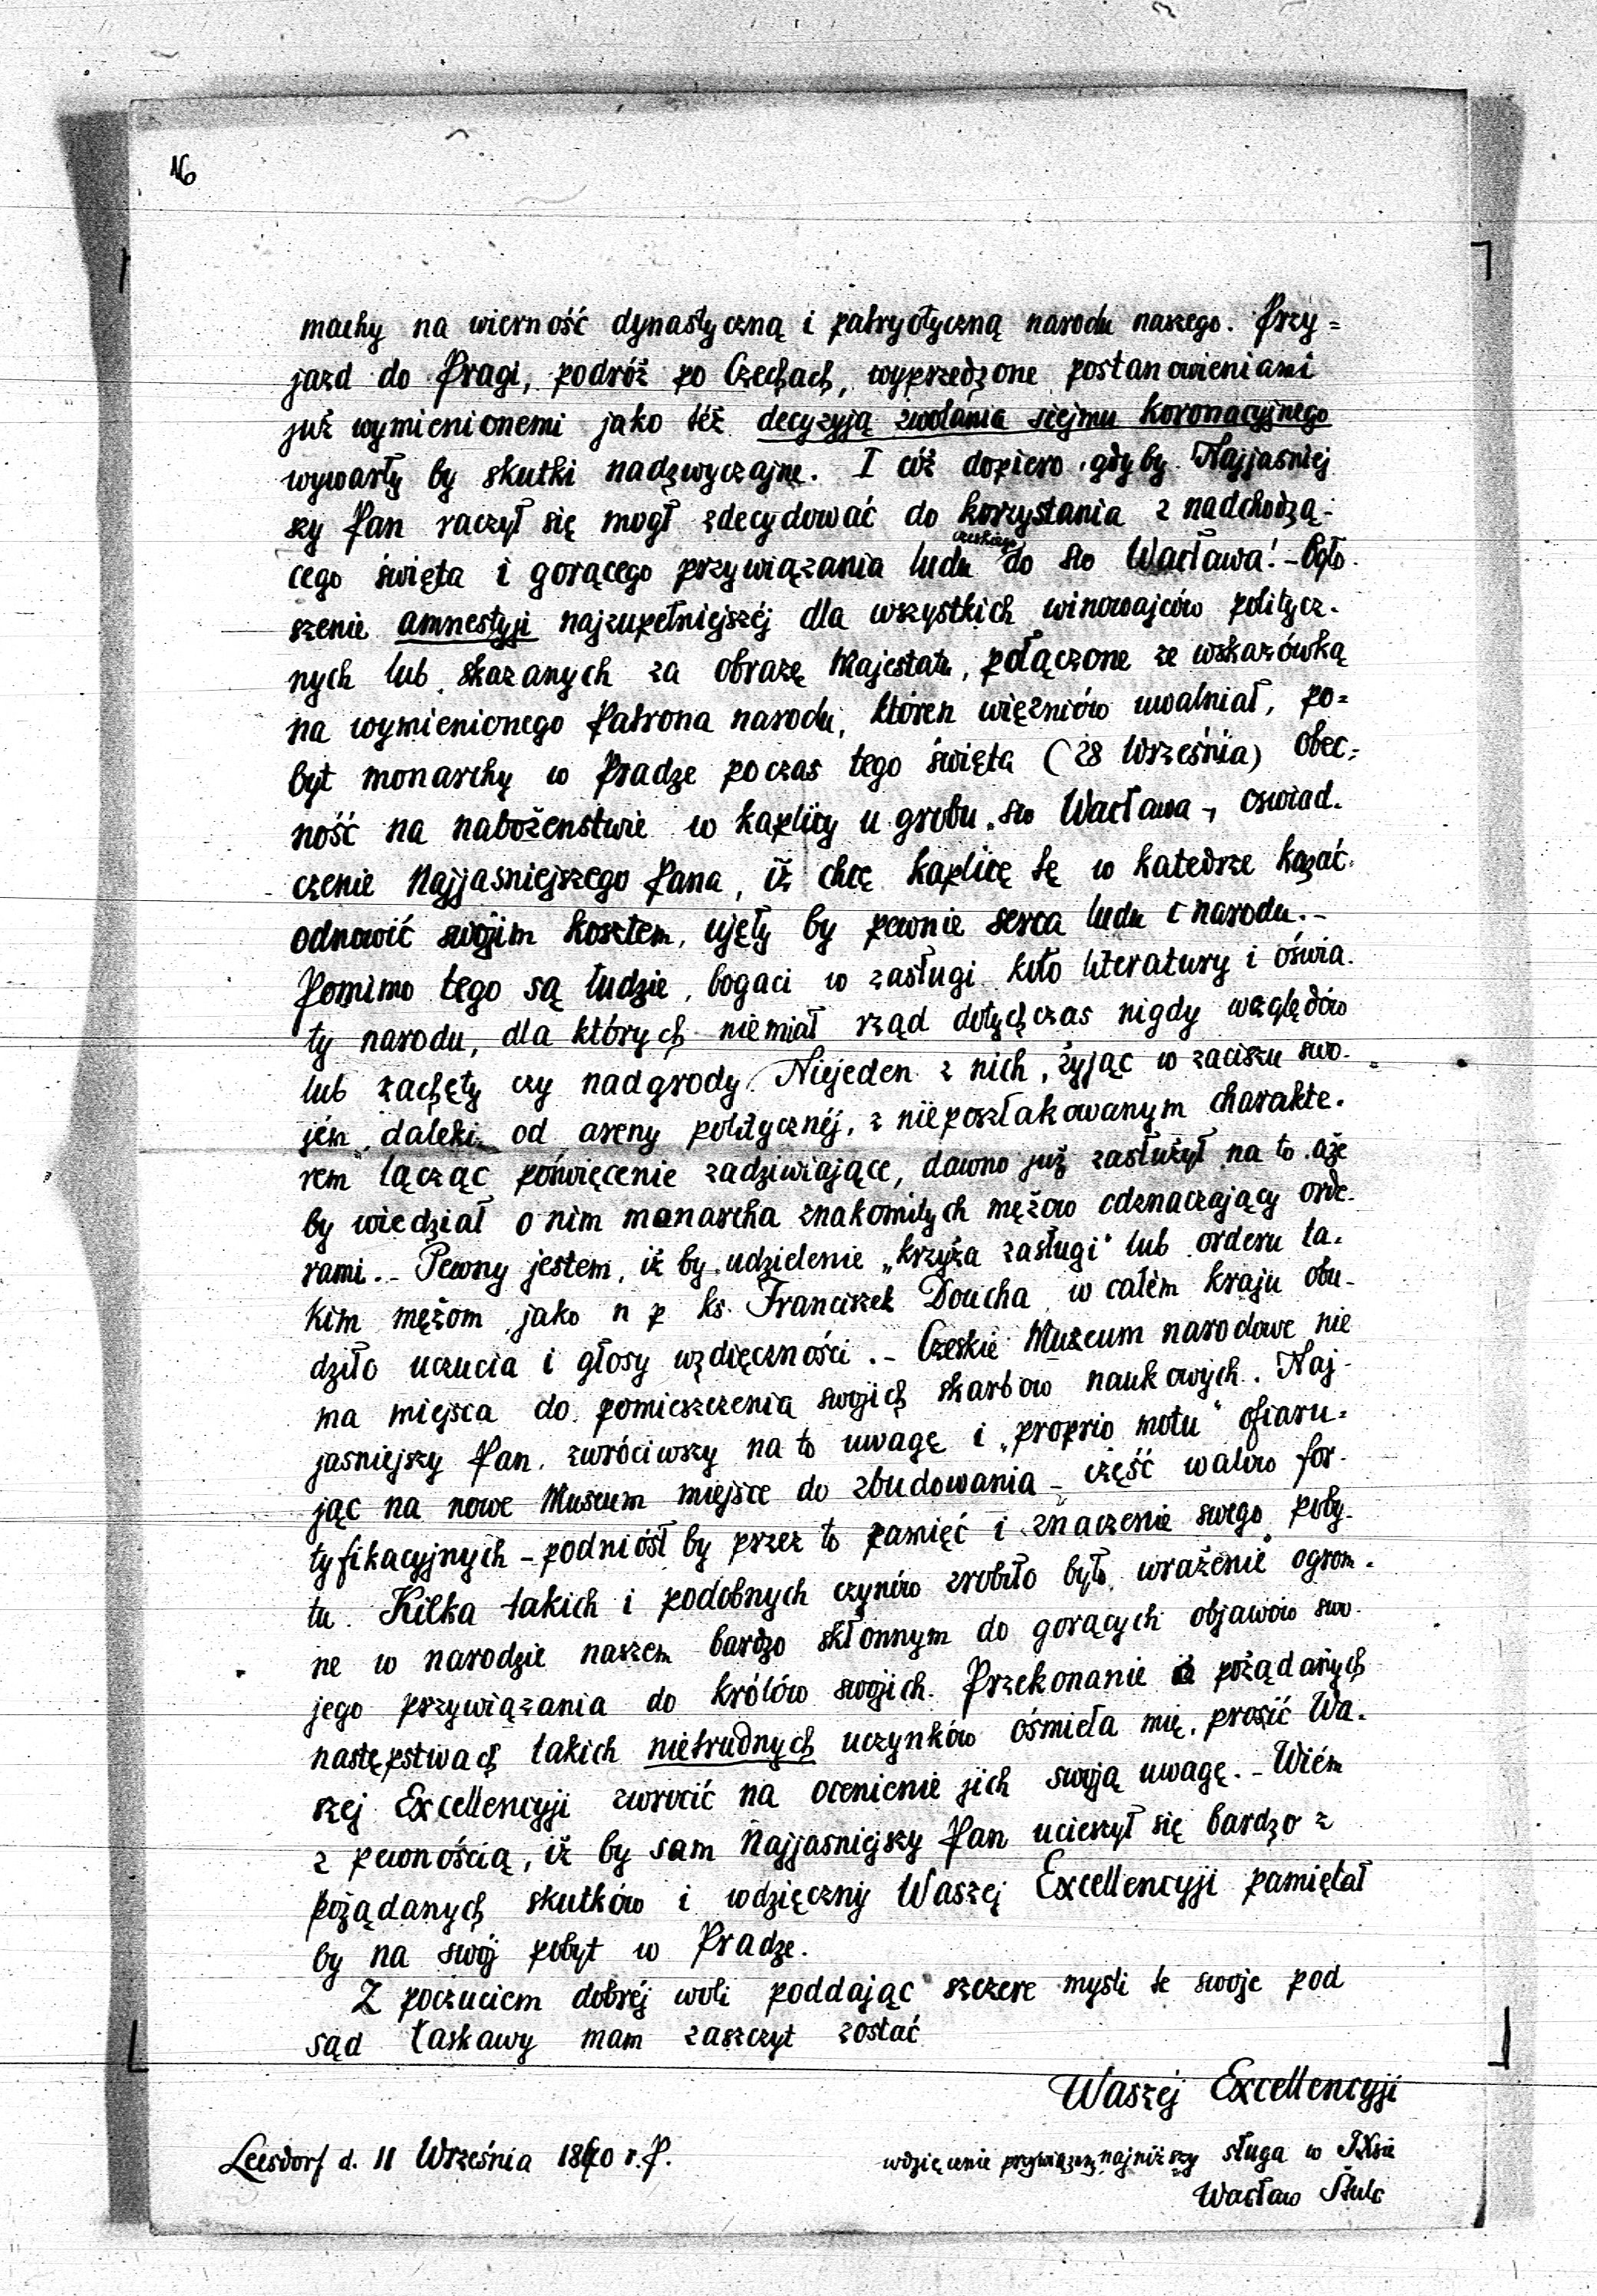 16
machy na wierność dynastyczną i patryotyczną narodu naszego. Przy=
jazd do Pragi, podróż po Czechach, wyprzedzone postanowieniami
już wymienionemi jako téż decyzyją zwołania siejmu koronacyjnego
wywarły by skutki nadzwyczajne. I cóż dopiero, gdyby Najjasniej
szy Pan raczył się mogł zdecydować do korzystania z nadchodzą-
cego święta i gorącego przywiązania ludu czeskiego do św Wacława! - Ogło-
szenie amnestyji najzupełniejszéj dla wszystkich winowajców politycz-
nych lub skazanych za obrazę Majestatu, połączone ze wskazówką
na wymienionego Patrona narodu, któren więzniów uwalniał, po=
byt monarchy w Pradze poczas tego święta (28 Września) obec=
ność na nabożenstwie w kaplicy u grobu św Wacława -, oswiad-
czenie Najjasniejszego Pana, iż chcę kaplicę tę w katedrze kazać
odnowić swojim kosztem, ujęły by pewnie serca ludu i narodu. -
Pomimo tego są ludzie, bogaci w zasługi koło literatury i oświa-
ty narodu, dla których niemiał rząd dotychczas nigdy względów
lub zachęty czy nadgrody. Niejeden z nich, żyjąc w zaciszu swo-
jém, daleki od areny politycznéj, z nieposzlakowanym charakte-
rem łącząc poświęcenie zadziwiające, dawno już zasłużył na to aże
by wiedział o nim monarcha znakomitych mężow odznaczający orde-
rami. - Pewny jestem, iż by udzielenie „krzyża zasługi" lub orderu ta-
kim mężom jako n p ks. Franciszek Doucha w całém kraju obu-
dziło uczucia i głosy wzdięczności. - Czeskie Muzeum narodowe nie
ma miejsca do pomieszczenia swojich skarbow naukowych. Naj-
jasniejszy Pan, zwróciwszy na to uwagę i „proprio motu" ofiaru=
jąc na nowe Museum miejsce do zbudowania - część walów for-
tyfikacyjnych - podniósł by przez to pamięć i znaczenie swego poby-
tu. Kilka takich i podobnych czynów zrobiło było wrażenie ogrom-
ne w narodzie naszem bardzo skłonnym do gorących objawów swo-
jego przywiązania do królów swojich. Przekonanie o pożądanych
następstwach takich nietrudnych uczynków ośmiela mię, prosić Wa-
szej Excellencyji zwrocić na ocenienie jich swoją uwagę. - Wiém
z pewnością, iż by sam Najjasniejszy Pan ucieszył się bardzo z
pożądanych skutków i wdzięczny Waszej Excellencyji pamiętał
by na swój pobyt w Pradze.
Z poczuciem dobréj woli poddając szczere mysli te swoje pod
sąd łaskawy mam zaszczyt zostać
Waszéj Excellencyji
Leesdorf d. 11 Września 1840 r. P.
wdzięcznie przywiązany najniższy sługa w JXsie
Wacław Štulc